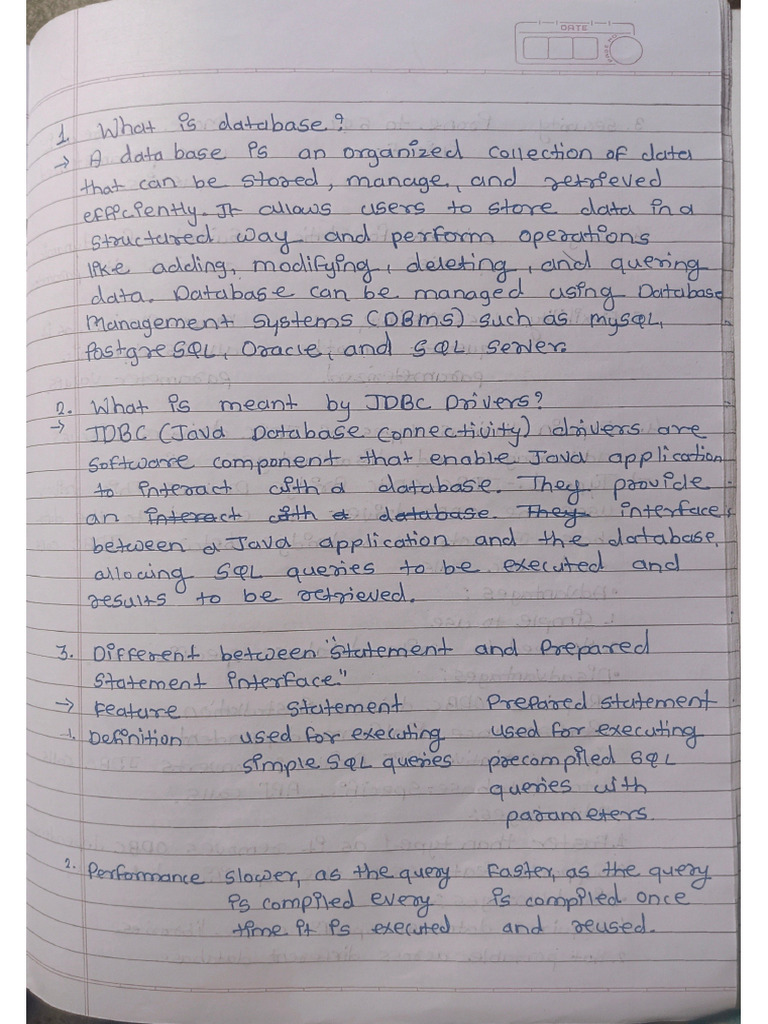 DATE
PAGE NO.
1. What is database?
→ A data base is an organized collection of data
that can be stored, manage, and retrieved
efficiently. It allows users to store data in a
structured way and perform operations
like adding, modifying, deleting, and quering
data. Database can be managed using Database
Management Systems (DBMS) such as mySQL,
PostgreSQL, Oracle, and SQL server.
2. What is meant by JDBC Drivers?
→ JDBC (Java Database Connectivity) drivers are
software component that enable Java application
to interact with a database. They provide
an interact with a database. They interface
between a Java application and the database,
allocing SQL queries to be executed and
results to be retrieved.
3. Different between "Statement and Prepared
Statement interface."
→ Feature Statement Prepared statement
1. Definition used for executing used for executing
simple SQL queries precompiled SQL
queries with
parameters.
2. Performance slower, as the query Faster, as the query
is compiled every is compiled once
time it is executed and reused.